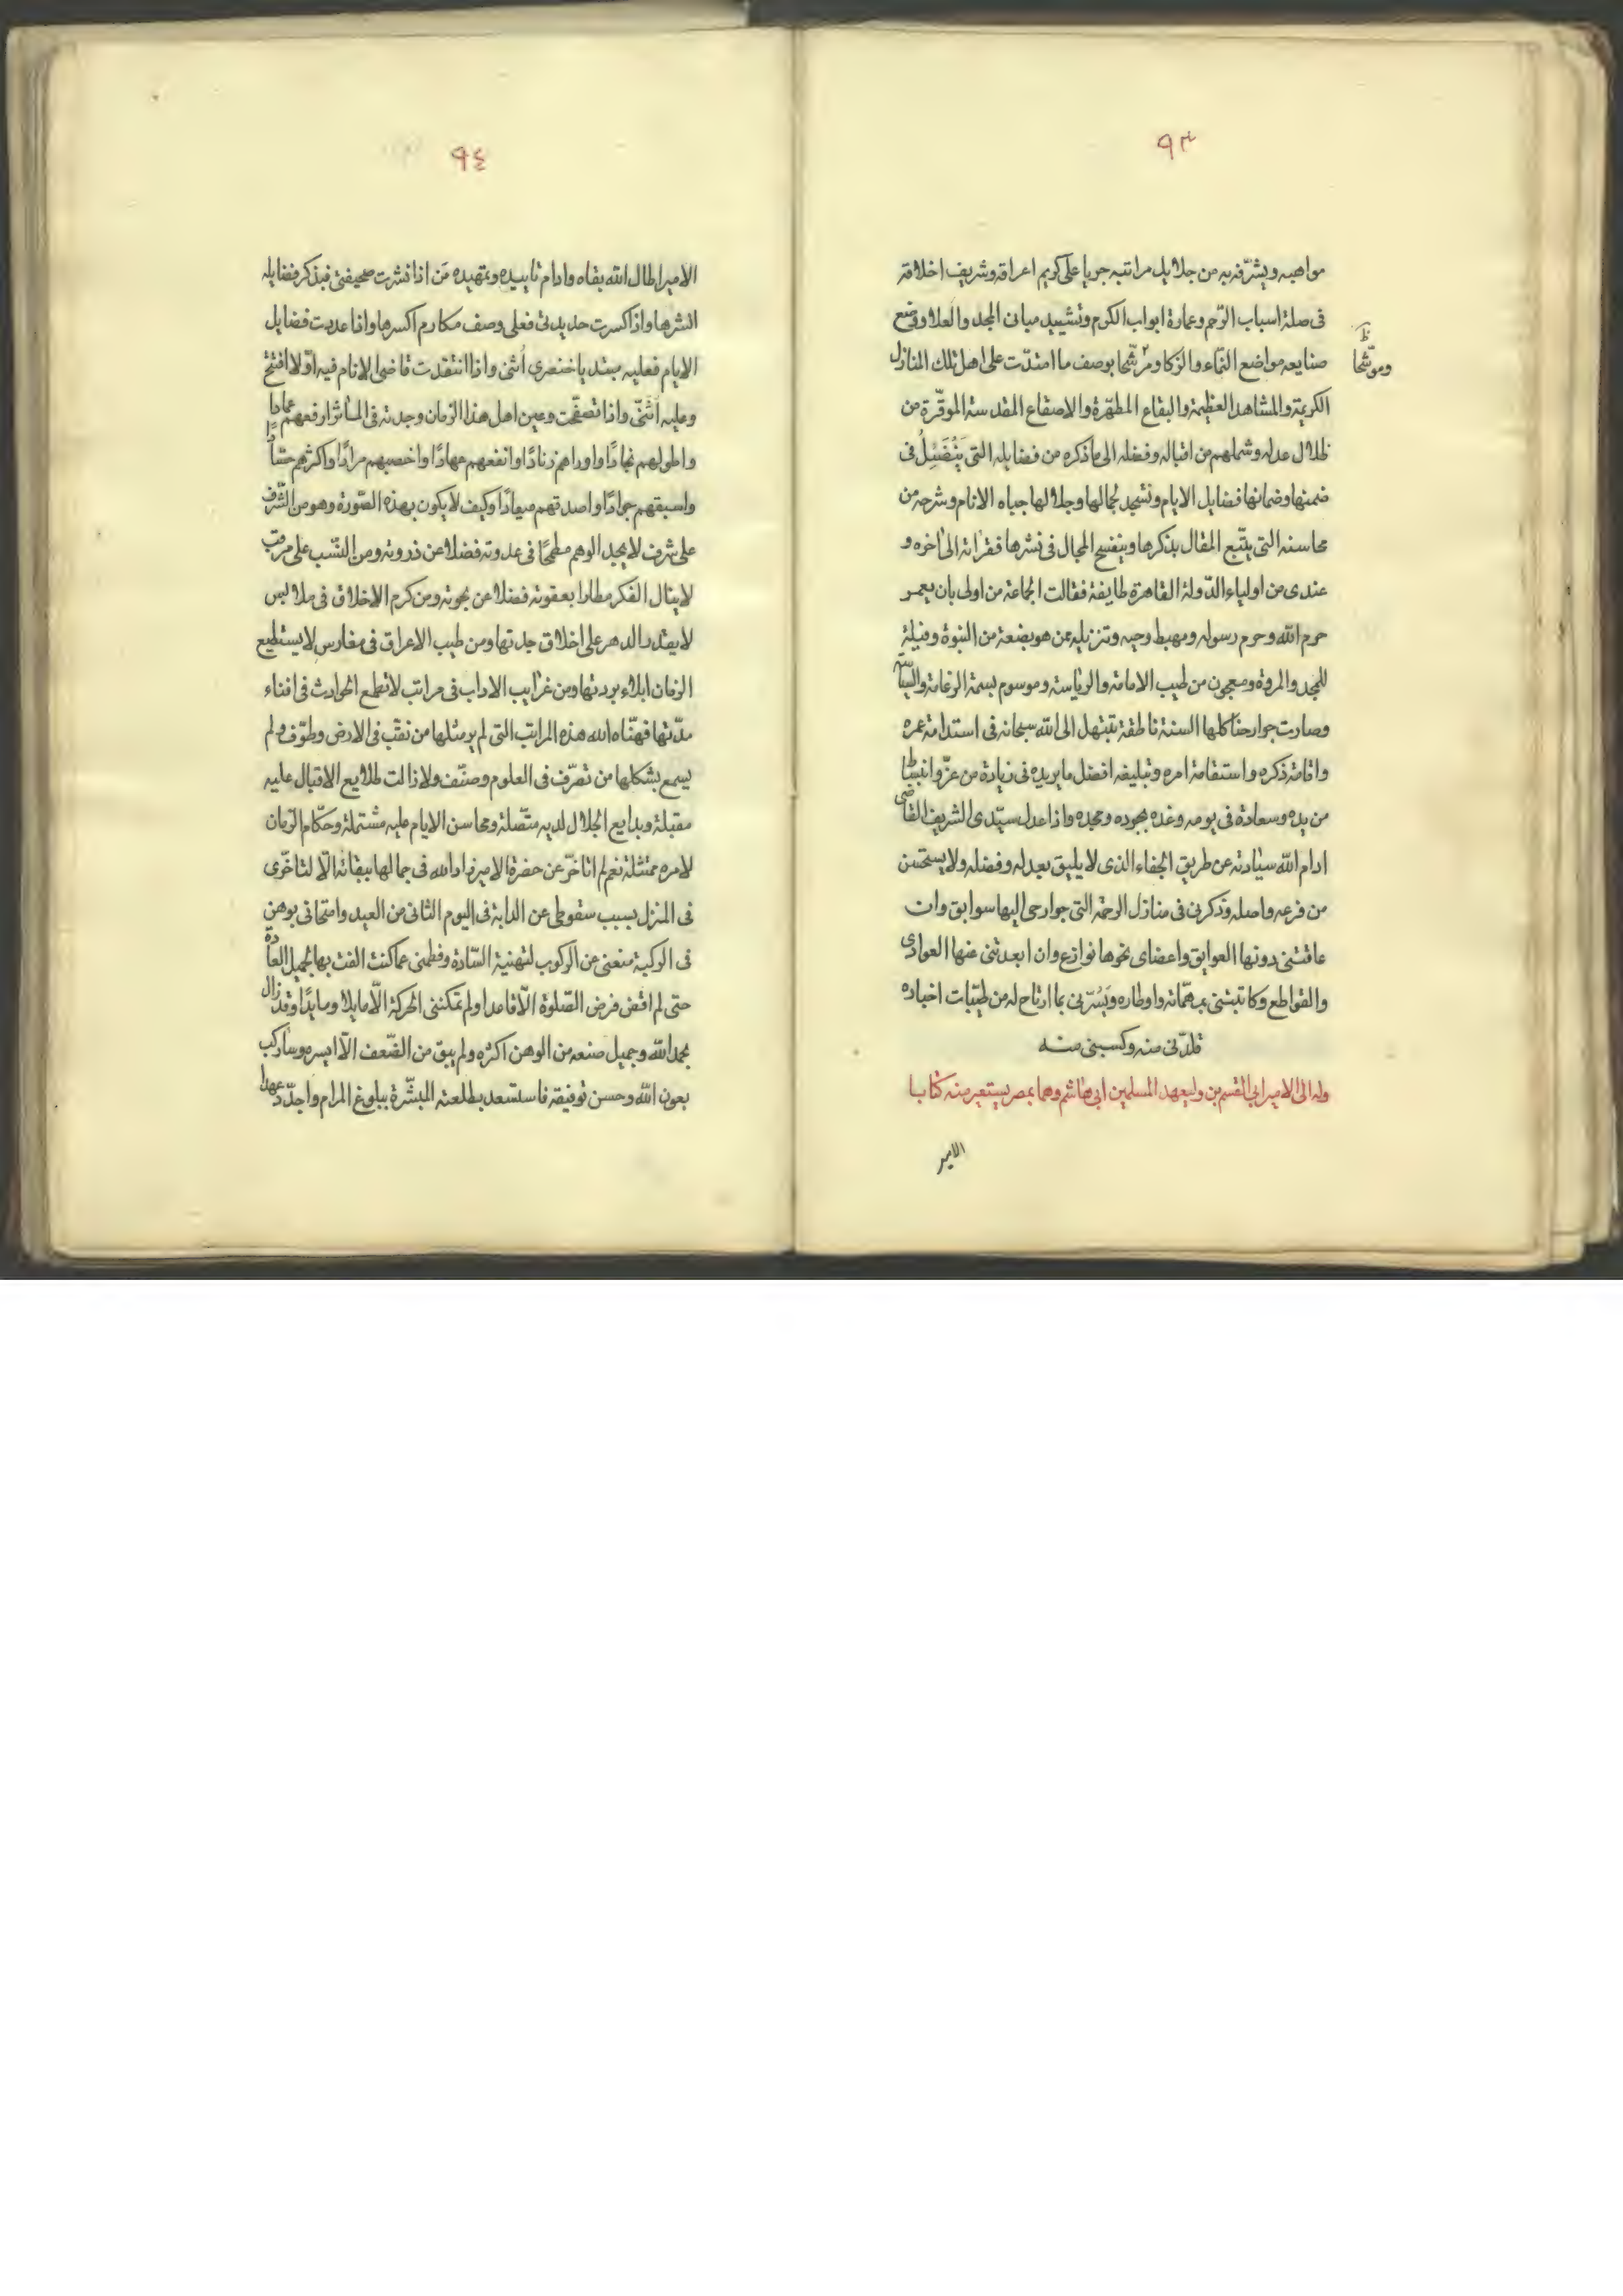 ٩٣
مواهبه ويشرّفه به من جلايل مراتبه جريا على كريم اعراقه وشريف اخلاقه
فى صلة اسباب الرّحم وعمارة ابواب الكرم وتشييد مبانى المجد والعلا ووضع
صنايعه مواضع النّماء والزكا ومرشّحا بوصف ما امتدّت على اهل تلك المنازل
وموشّحا
الكريمة والمشاهد العظيمة والبقاع المطهّرة والاصقاع المقدسة الموقّرة من
ظلال عدله وشملهم من اقباله وفضله الى ما ذكره من فضايله التى يتضئل فى
ضمنها وضمانها فضايل الايام وتسجد لجمالها وجلالها جباه الانام وشرحه من
محاسنه التى يتّبع المقال بذكرها وينفسح المجال فى نشرها فقراته الى اخره و
عندى من اولياء الدّولة القاهرة طايفة فقالت الجماعة من اولى بان يعمر
حرم الله وحرم رسوله ومهبط وحيه وتنزيله ممن هو بضعة من النبوة وفيلة
للمجد والمروة ومعجون من طيب الامامة والرياسة وموسوم بسمة الزعامة والسياسة
وصارت جوارحنا كلها السنة ناطقة تبتهل الى الله سبحانه فى استدامة عمره
واقامة ذكره واستقامة امره وتبليغه افضل ما يريده فى زيادة من عزّ وانبساط
من يده وسعادة فى يومه وغده بجوده ومجده واذا عدل سيّدى الشريف القاضى
ادام الله سيادته عن طريق الجفاء الذى لا يليق بعدله وفضله ولا يستحسن
من فرعه واصله وذكرنى فى منازل الرحمة التى جوارحى اليها سوابق وان
عاقتنى دونها العوايق واعضاى نحوها نوازع وان ابعدتنى عنها العوادى
والقواطع وكاتبنى بمهمّاته واوطاره ويسّرنى بما ارتاح له من طيّبات اخباره
قلدّنى منه وكسبنى منه
وله الى الامير ابى القسم بن وليعهد المسلمين ابى هاشم وهما بمصر يستعير منه كتابا
الامير
٩٤
الامير اطال الله بقاه وادام تاييده وتمهيده من اذا نشرت صحيفتى فبذكر فضايله
انشرها واذا كسرت حديدتى فعلى وصف مكارم اكسرها واذا عددت فضايل
الايام فعليه مبتديا خنصرى أثنى واذا انتقدت قاضى الانام فيه اوّلا افتتح
وعليه اثنّى واذا تصفّحت وعين اهل هذا الزمان وجدته فى المآثر ارفعهم عمادا
واطولهم نجادًا واوراهم زنادًا وانفعهم مهادًا واخصبهم مرادًا واكثرهم حشدًا
واسبقهم جوادًا واصدقهم ميعادًا وكيف لا يكون بهذه الصّورة وهو من الشّرف
على شرف لا يجد الوهم مطمحًا فى عدوته فضلا عن ذروته ومن النسّب على مرقب
لا ينال الفكر مطارا بعقوته فضلا عن نجوته ومن كرم الاخلاق فى ملابس
لا يقدر الدهر على اخلاق جدتها ومن طيب الاعراق فى مغارس لا يستطيع
الزمان ابلاء بردتها ومن غرايب الاداب فى مراتب لا تطمع الحوادث فى افناء
مدّتها فهنّاه الله هذه المراتب التى لم ير مثلها من نقّب فى الارض وطوّف ولم
يسمع بشكلها من تصرّف فى العلوم وصنّف ولا زالت طلايع الاقبال عليه
مقبلة وبدايع الجلال لديه متّصلة ومحاسن الايام عليه مشتملة وحكّام الزمان
لامره ممتثلة نعم لم اتاخرّ عن حضرة الامير زاد الله فى جمالها ببقائه الّا لتاخّرى
فى المنزل بسبب سقوطى عن الدابة فى اليوم الثانى من العيد وامتحانى بوهن
فى الركبة منعنى عن الركوب لتهنية السّادة وفطمنى عما كنت الفت بها لجميل العادة
حتى لم اقض فرض الصّلوة الّا قاعدا ولم تمكننى الحركة الّا مايلا ومايدًا وقد زال
بحمد الله وجميل صنعه من الوهن اكثره ولم يبق من الضّعف الّا ايسره وساركب
بعون الله وحسن توفيقه فاستسعد بطلعته المبشّرة ببلوغ المرام واجدّد عهدا